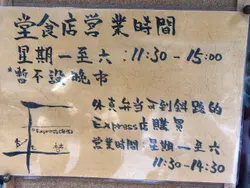 堂食店營業時間
星期一至六：11:30 - 15:00
*暫不設晚市
外賣弁当可到斜路的
Express店購買
營業時間：星期一至六
11:30-14:30